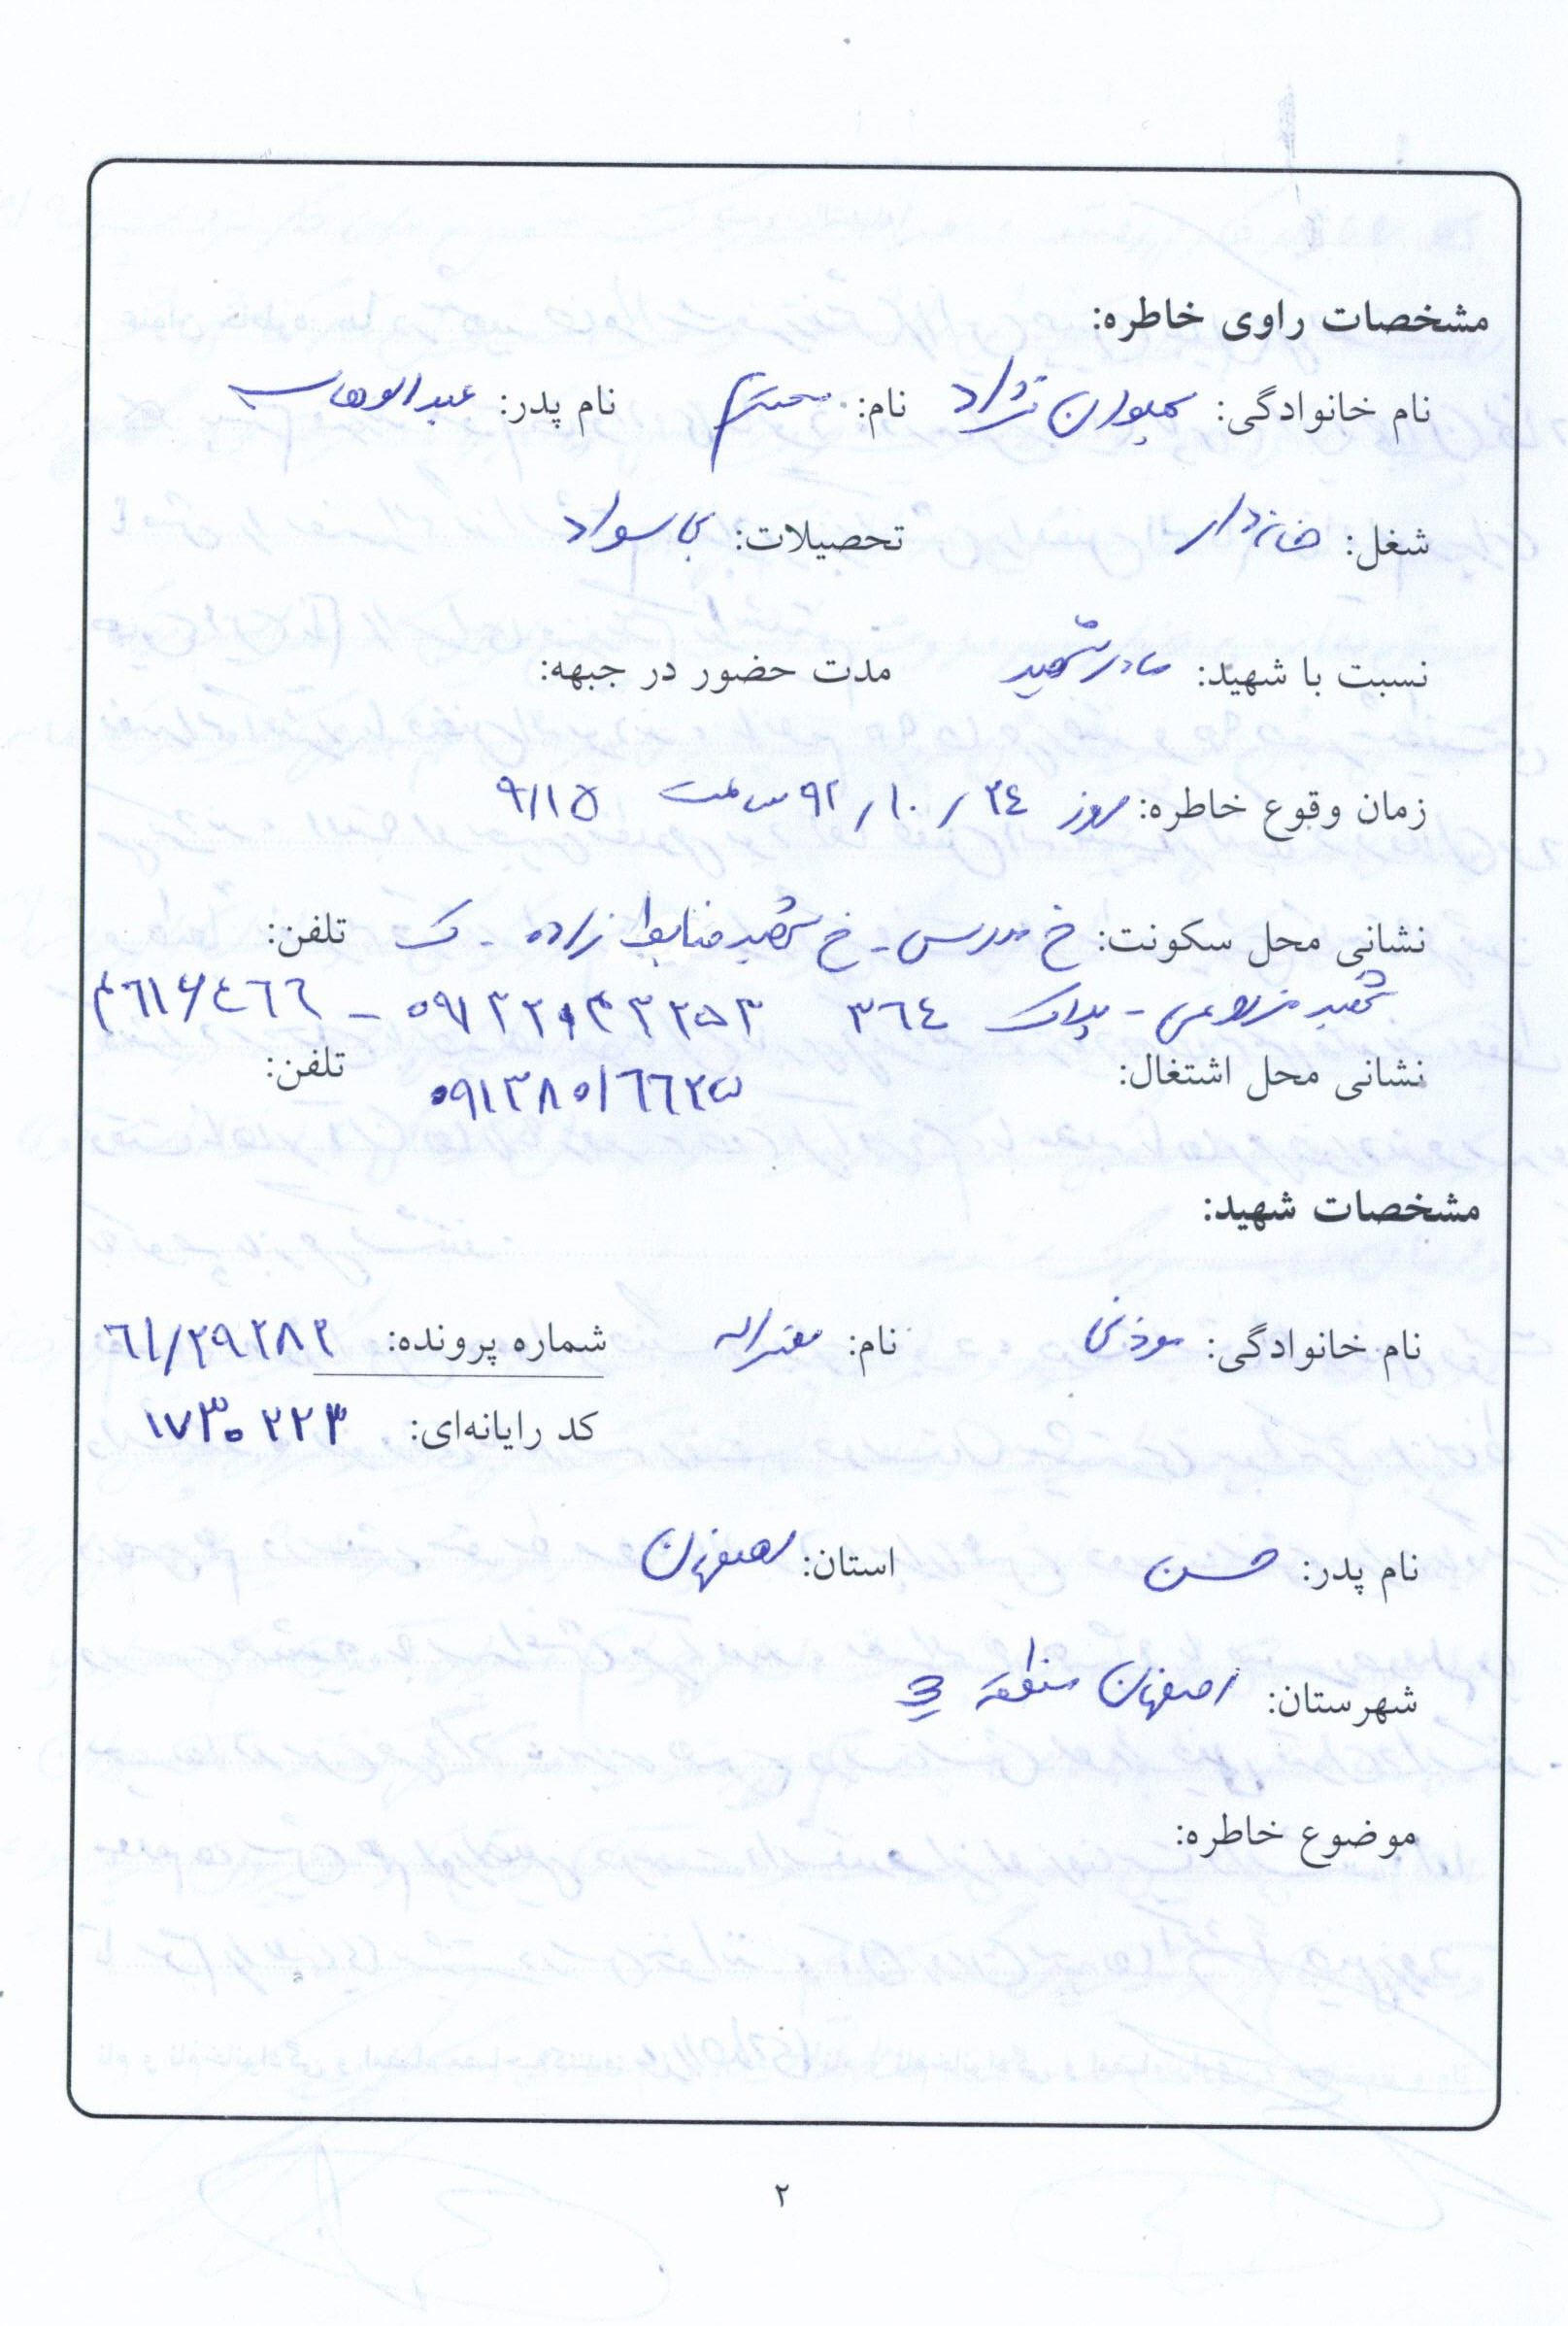 مشخصات راوی خاطره:
نام خانوادگی: نژاد نام: محترم نام پدر: عبدالوهاب
شغل: خانه دار تحصیلات: بی سواد
نسبت با شهید: مادر شهید مدت حضور در جبهه:
زمان وقوع خاطره: روز ۲۴ / ۱۰ / ۹۲ ساعت ۹/۱۵
نشانی محل سکونت: خ مدرس - خ شهید ضابط زاده - ک تلفن:
شهید - پلاک ۳۶٤
نشانی محل اشتغال: ۰۹۱۳۸۰۱۶۶۲۵ تلفن:
مشخصات شهید:
نام خانوادگی: موذنی نام: شماره پرونده: ۶۱/۲۹۲۸۲
کد رایانه‌ای: ۱۷۳۰۲۲۳
نام پدر: حسن استان: اصفهان
شهرستان: اصفهان منطقه 3
موضوع خاطره:
۲